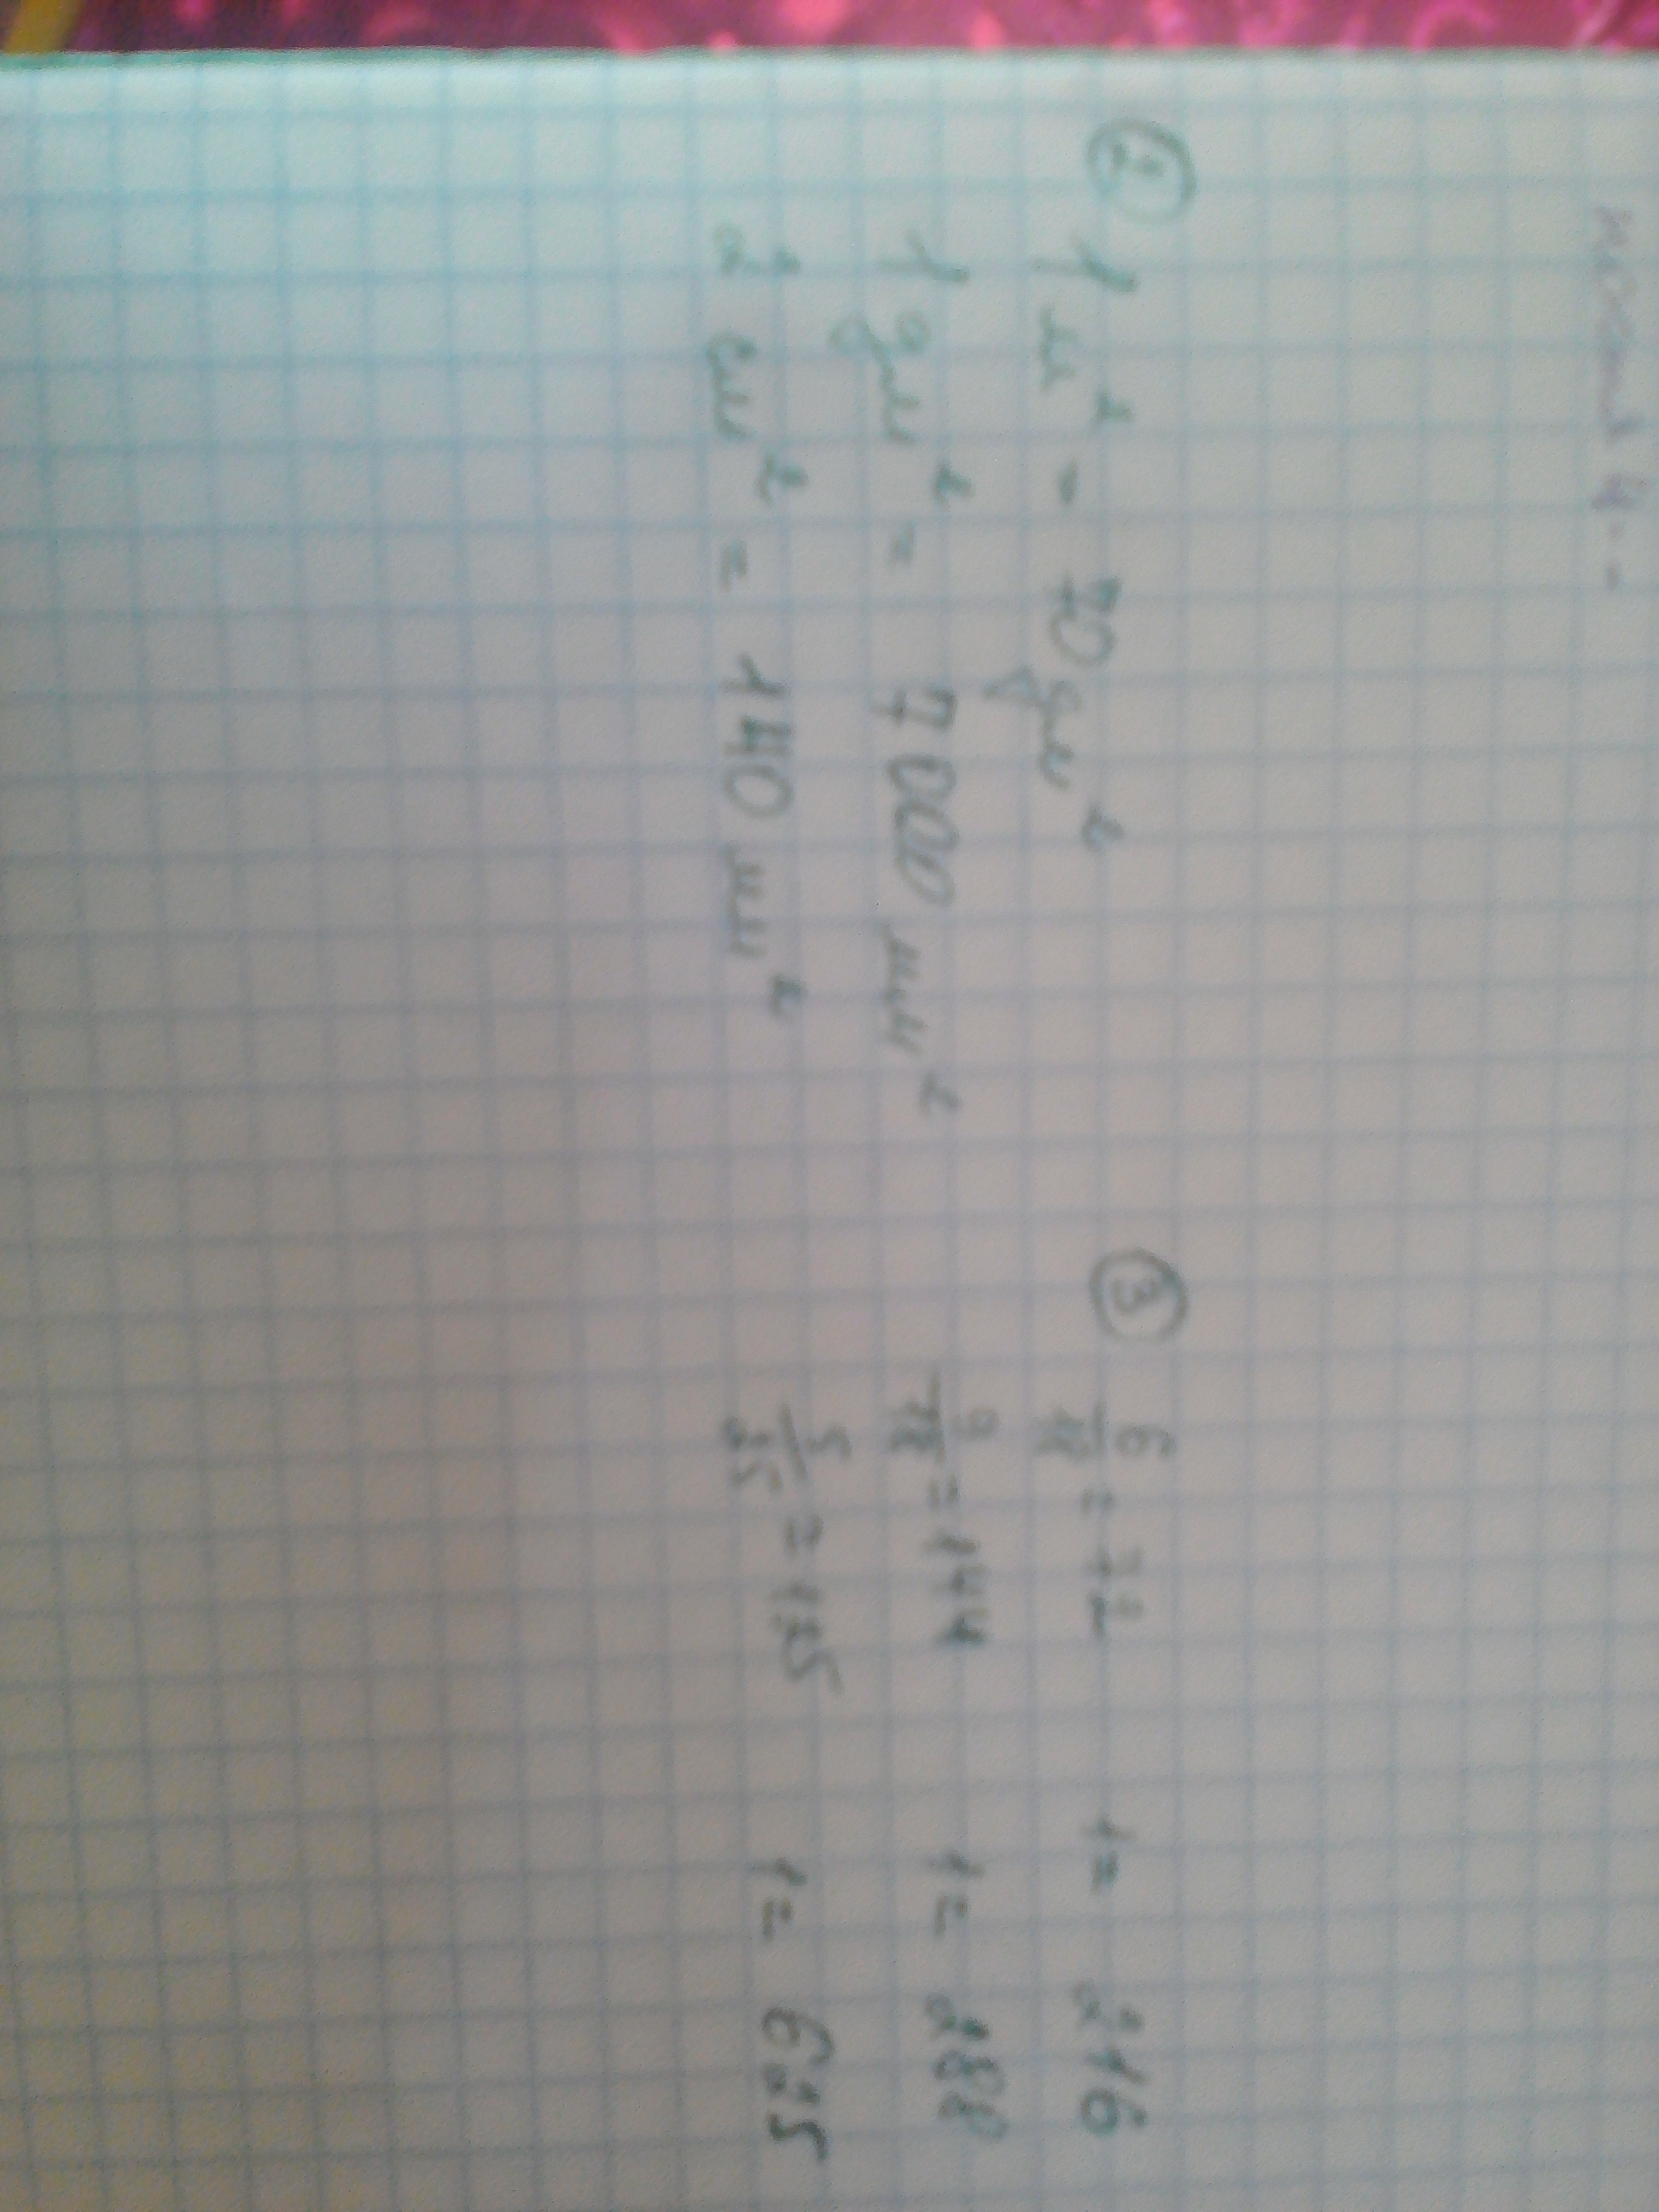 ②
1 м² - 70 дм²
1 дм² = 7000 мм²
2 см² = 140 мм²
③
6/18 = 72 1 = 216
9/18 = 144 1 = 288
5/25 = 125 1 = 625